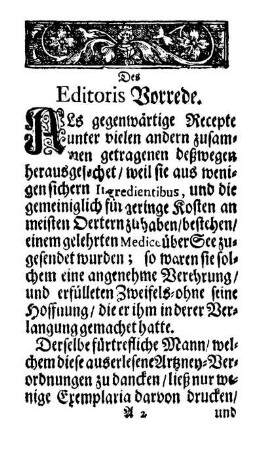 Des
Editoris Vorrede.
ALs gegenwärtige Recepte
unter vielen andern zusam-
men getragenen deßwegen
herausgesechet / weil sie aus weni-
gen sichern Ingredientibus, und die
gemeiniglich für geringe Kosten an
meisten Oertern zu haben / bestehen /
einem gelehrten Medico über See zu-
gesendet wurden ; so waren sie sol-
chem eine angenehme Verehrung /
und erfülleten Zweifels-ohne seine
Hoffnung / die er ihm in derer Ver-
langung gemachet hatte.
Derselbe fürtrefliche Mann / wel-
chem diese auserlesene Artzney-Ver-
ordnungen zu dancken / ließ nur we-
nige Exemplaria darvon drucken /
A 2 und